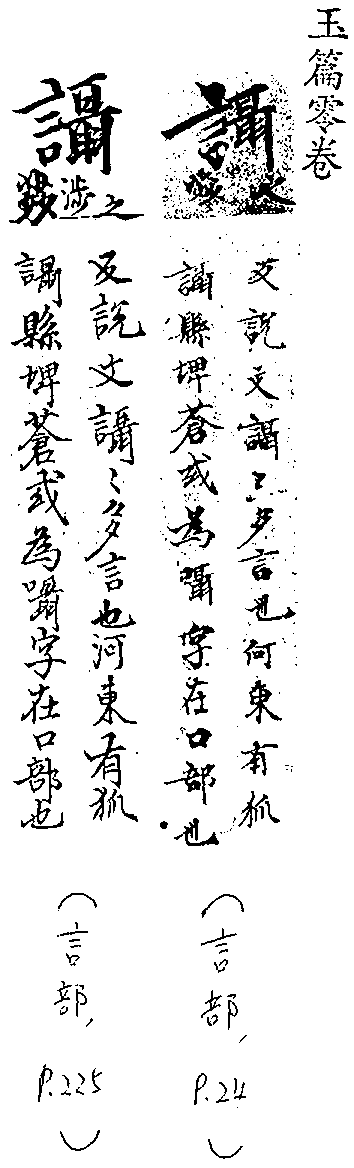 玉篇零卷
讘
反說文讘〻多言也何東有狐
讘縣埤蒼或為囁字在口部也
(言部, P.24)
讘
之涉
反說文讘〻多言也河東有狐
讘縣埤蒼或為囁字在口部也
(言部, P.225)